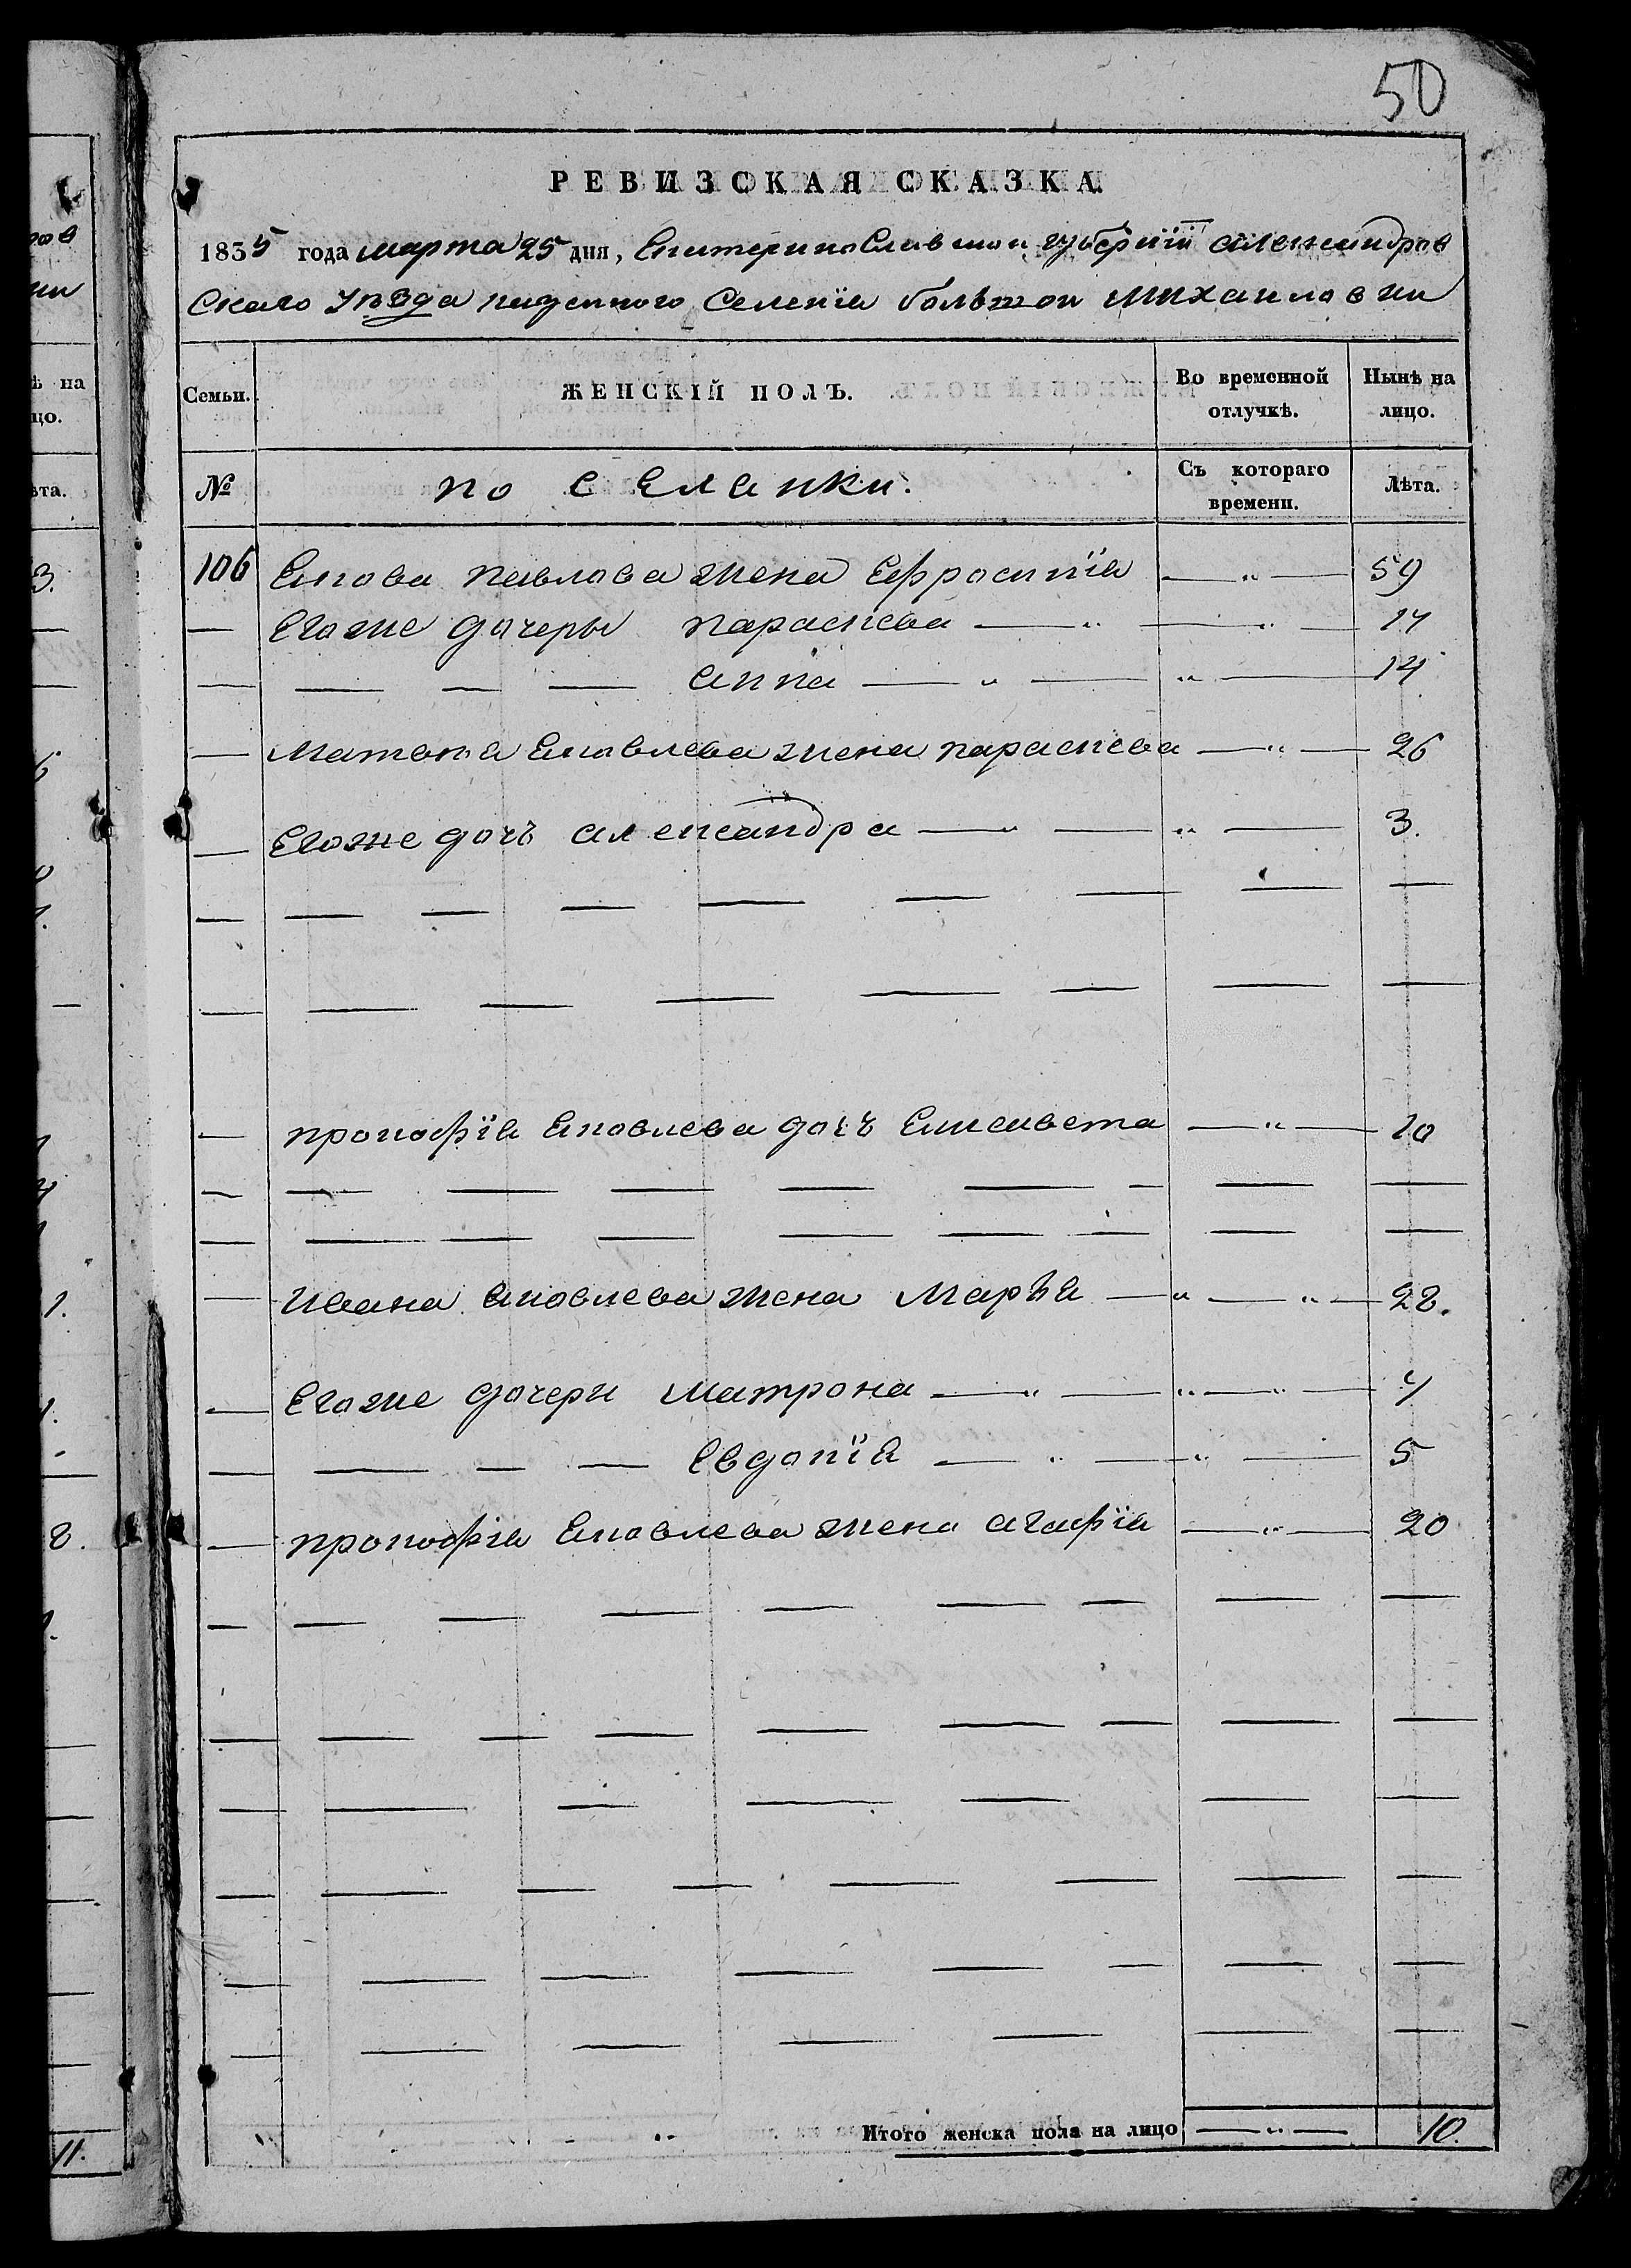 50
РЕВИЗСКАЯ СКАЗКА
1835 года марта 25 дня, Екатеринославской губернїи александров
скаго уѣзда казенного Селенїя большой михаиловки
Семьи. ЖЕНСКІЙ ПОЛЪ. Во временной отлучкѣ. Нынѣ на лицо.
№ поселянки. Съ котораго времени. Лѣта.
106 Якова павлова жена Ефросинїя — " — 59
— Егоже дочеры параскева — " — " — 17
— — — — анна — " — " — 14
— Матвея Яковлева жена параскева — " — 26
— Егоже дочь александра — " — " — 3.
— прокофїя Яковлева дочь Елисавета — " — 10
— Ивана Яковлева жена Марья — " — " — 28.
— Егоже дочери матрона — " — " — " — 7
— — — — Евдокїя — " — " — 5
— прокофїя Яковлева жена агафїя — " — 20
Итого женска пола на лицо — " — 10.